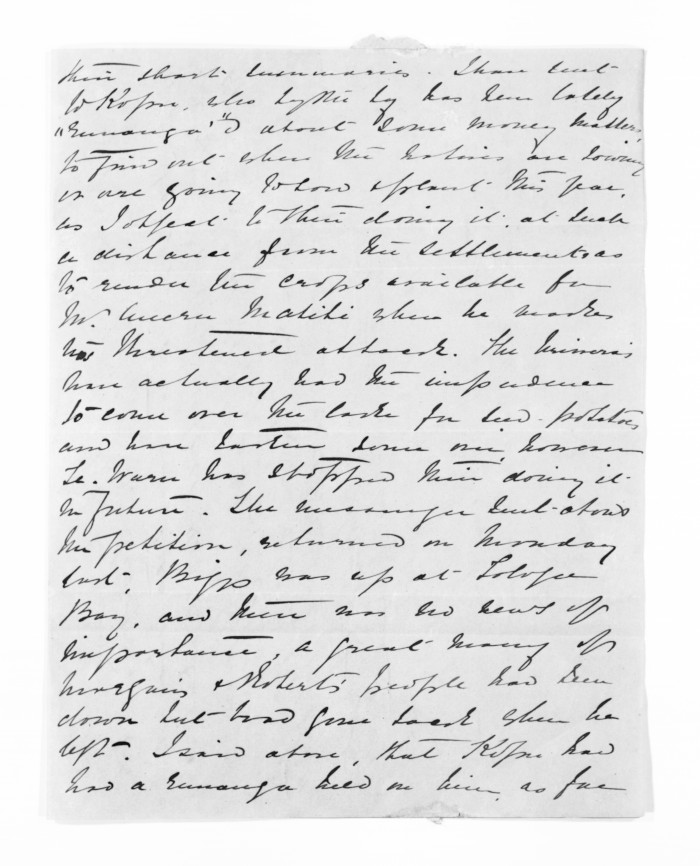 their short summaries. I have sent
to Kopu, who by the by has been lately
"Runanga'"d about some money matters,
to find out where the natives are sowing
or are going to sow & plant this year,
as I object to their doing it, at such
a distance from the settlement as
to render the crops available for
Mr. Matiti when he makes
his threatened attack. The
have actually had the impudence
to come over the lake for seed-potatoes
and have some over, however
Te Waru has stopped them doing it
in future. The messenger sent about
the petition, returned on Monday
last, Biggs was up at Tologa
Bay, and there was no news of
importance, a great many of
Morgain's & Potert's people had been
down but had gone back when he
left. I said above, that Kopu had
had a runanga held on him, as far